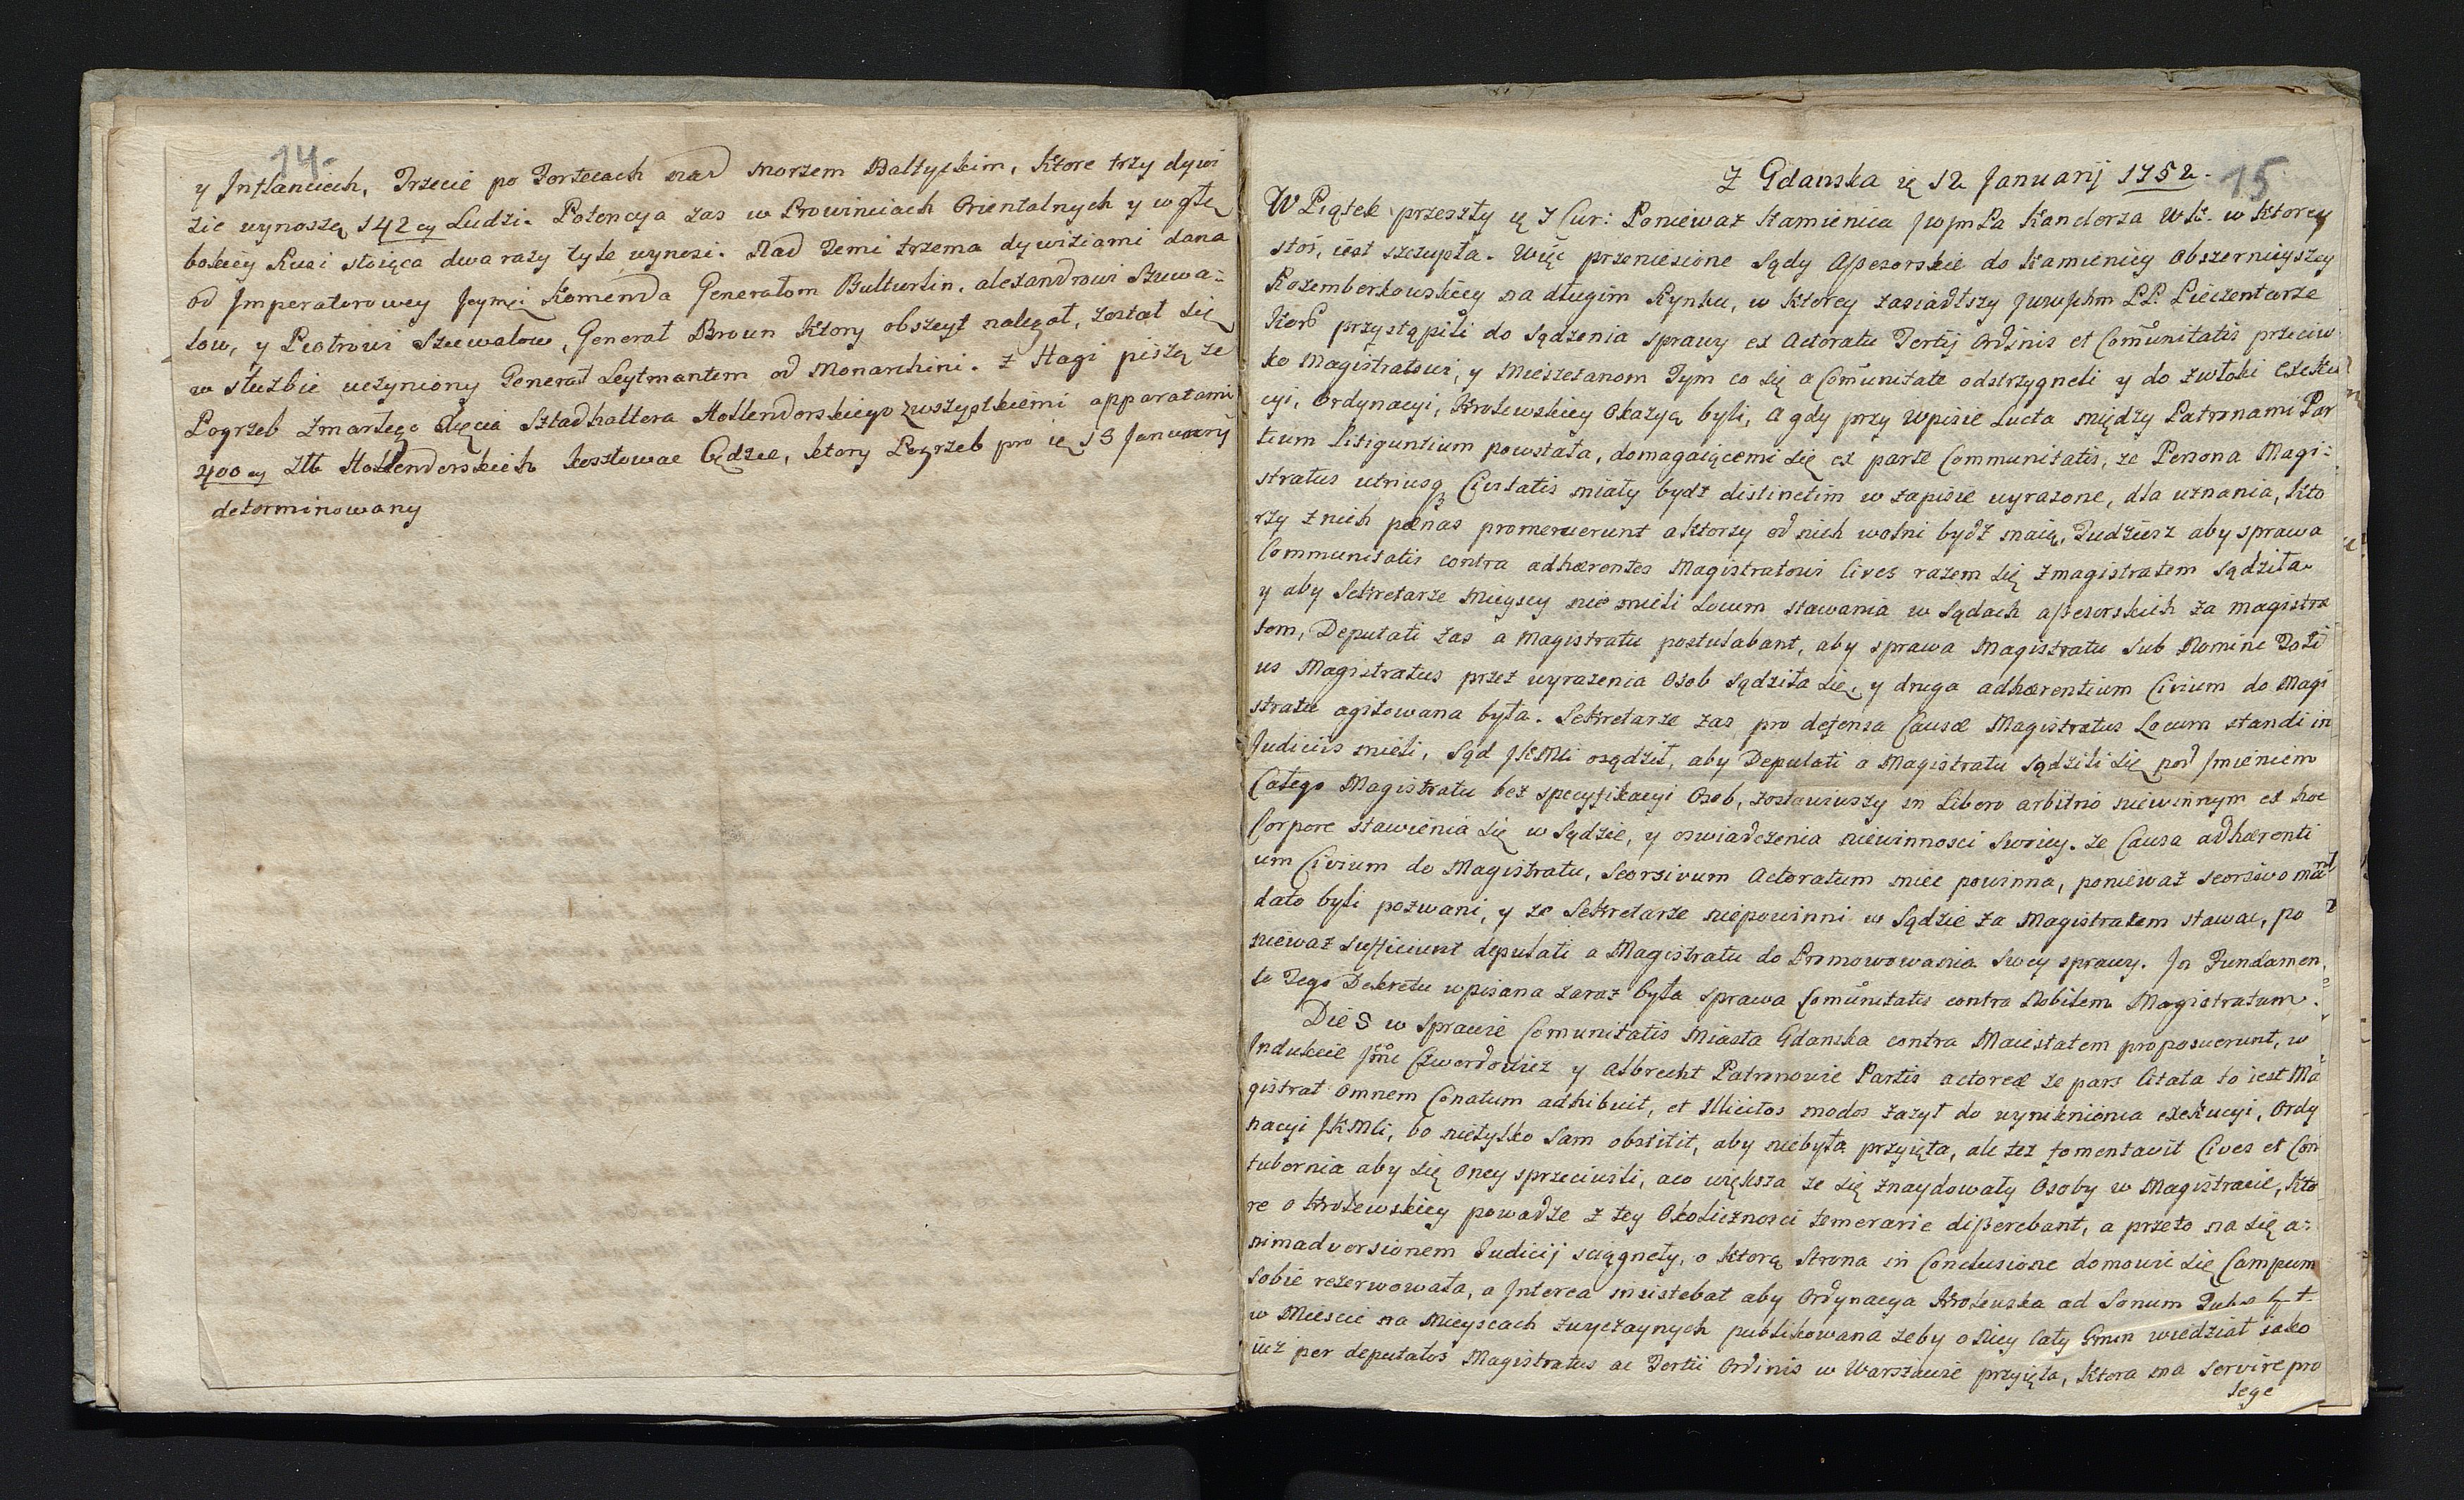 14.
y Inflanciech, Trzecie po Fortecach nad morzem Baltyckim, Ktore trzy dywi
zie wynoszą 142 cy Ludzi. Potencya zas w Prowinciach Orientalnych y w głę
bokiey Rusi stoiąca dwa razy tyle wynosi. Nad Temi trzema dywiziami dana
od Imperatorowey Jeymci Komenda Generałom Bulturlin, alexandrowi Szuwa-
low, y Piotrowi Szuwalow, Generał Broun Ktory obszeyt nalegał, został się
w służbie uczyniony Generał Leytmantem od Monarchini. Z Hagi piszą ze
Pogrzeb Zmarłego Xięcia Sztadhaltera Hollenderskiego zwszystkiemi apparatami
400 cy Złt Hollenderskich kosztowac będzie, ktory Pogrzeb pro 18 January
determinowany
15
Z Gdanska 12 Januarij 1752.
W Piątek przeszły 7 Cur: Poniewaz Kamienica Jwjm Pa Kanclerza WK. w Ktorey
stoi, iest szczupła. Więc przeniesione Sądy Assesorskie do Kamienicy obszernieyszey
Rozemberkowskiey na długim Rynku, w Ktorey zasiadłszy PP Pieczentarze
Kor przystąpili do Sądzenia sprawy ex Actoratu Tertij Ordinis et Comunitatis przeciw
ko Magistratowi, y Mieszczanom Tym co się a Comunitate odstrzygneli y do zwłoki exeku
cyi, Ordynacyi, Krolewskiey Okazyą byli, a gdy przy Wpisie Lucta między Patronami Par
tium litiguntium powstała, domagaiącemi się ex parte Communitatis, ze Persona Magi-
stratus utriusq Civitatis miały bydz distinctim w zapisie wyrazone, dla uznania, Kto
rzy z nich pænas promeruerunt a Ktorzy od nich wolni bydz maią, Tudziesz aby sprawa
Communitatis contra adhærentes Magistratowi Cives razem się z magistratem sądziła
y aby Sekretarze Mieyscy nie mieli Locum stawania w Sądach assesorskich za magistra
tem, Deputati zas a Magistratu postulabant, aby sprawa Magistratu sub Nomine Toti
us Magistratus przez wyrazenia Osob sądziła się, y druga adhærentium Civium do Magi
stratu agitowana była. Sekretarze zas pro defensa Causæ Magistratus Locum standi in
Judiciis mieli, Sąd JKMci osądził, aby Deputati a Magistratu sądzili się pod Jmieniem
Całego Magistratu bez specyfikacyi Osob, zostawiwszy in libero arbitrio niewinnym ex hoc
Corpore stawienia się w Sądzie, y oswiadczenia niewinnosci swoiey. ze Causa adhærenti
um Civium do Magistratu, Seorsivum Actoratum miec powinna, poniewaz seorsivo mā
dato byli pozwani, y ze Sekretarze niepowinni w Sądzie za Magistratem stawac, po
niewaz sufficiunt deputati a Magistratu do Promowowania swey sprawy. In Fundamen
to Tego Dekretu wpisana zaraz była sprawa Comunitatis contra Nobilem Magistratum.
Die 8 w sprawie Comunitatis Miasta Gdanska contra Maiestatem proposuerunt, w
Indukcie Jmć Czwordowicz y Albrecht Patronowie Partis actoreæ ze pars Citata to iest Ma
gistrat Omnem Conatum adhibuit, et Illicitos modos zazył do uyniknienia exekucyi, Ordy
nacyi JKMci, bo nietylko sam obstitit, aby niebyła przyięta, ale tez fomentavit Cives et Con
tubernia aby się Oney sprzeciwili, aco większa ze się znaydowały Osoby w Magistracie, Kto
re o Krolewskiey powadze z tey Okolicznosci temerarie disserebant, a przeto na się a-
nimadversionem Judicij sciągneły, o ktorą Strona in Conclusione domowic się Campum
sobie rezerwowała, a Interea insistebat aby Ordynacya Krolewska ad Sonum
w Miescie na Mieyscach zwyczaynych publikowana zeby o niey Cały Gmin wiedział iako
iuz per deputatos Magistratus ac Tertii Ordinis w Warszawie przyięta, Ktora ma servire pro
lege